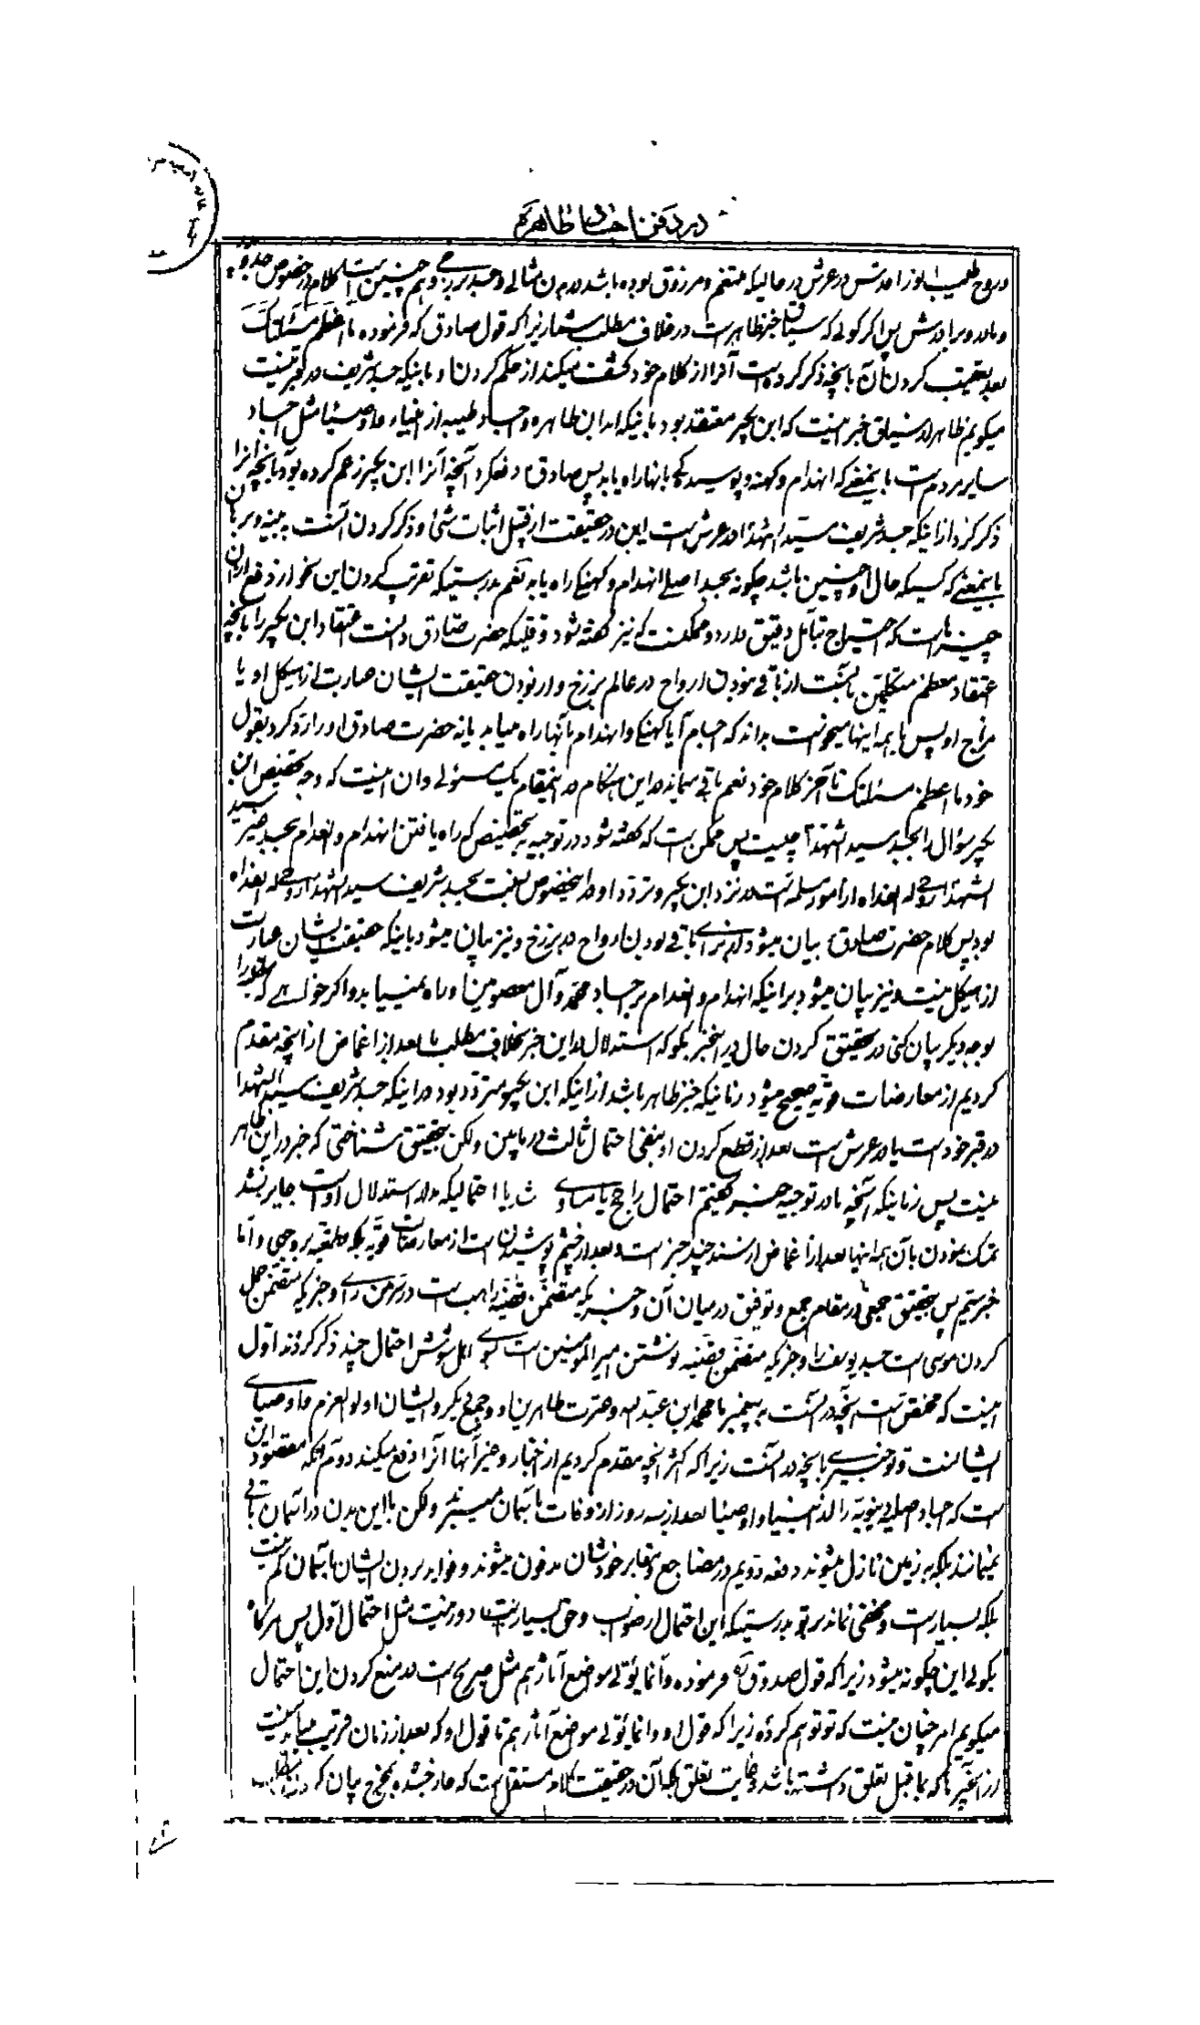 در دفن اجساد طاهره
و روح طیب انور اقدس در عرش در حالیکه متنعم و مرزوق بوده باشد در بدن مثالی و جسد برزخی و هم چنین است کلام در خصوص جد و پدر
و مادر و برادرش پس اگر گوئی که سیاق خبر ظاهر است در خلاف مطلب شما زیرا که قول صادق که فرموده ما اعظم مسئلتک
بعد تعقیب کردن آن بآنچه ذکر کرده است آنرا از کلام خود کشف میکند از حکم کردن او باینکه جسد شریف در قبر نیست
میگویم ظاهر از سیاق خبر اینست که ابن بکیر معتقد بود باینکه ابدان طاهره و اجساد طیبه از انبیاء و اوصیا مثل اجساد
سایر مردم است باینمعنی که انهدام و کهنه و پوسیدگی بآنها راه یابد پس صادق رد کرد آنچه آنرا ابن بکیر زعم کرده بود بآنچه آنرا
ذکر کرد از اینکه جسد شریف سید الشهدا در عرش است این در حقیقت از قبیل اثبات شئ و ذکر کردن آنست به بینه و برهان
باینمعنی که کسیکه حال او چنین باشد چگونه بجسد اصلی او انهدام و کهنگی راه یابد تفهم بدرستیکه تقریب کردن این بنحو از دفع از آن
چیزهاست که احتیاج بتأمل دقیق دارد و ممکنست که نیز گفته شود وقتیکه حضرت صادق دانست اعتقاد ابن بکیر را بآنچه
اعتقاد معظم متکلمین بآنست از باقی نبودن ارواح در عالم برزخ و از بودن حقیقت انسان عبارت از هیکل او یا
مزاج او پس با همه اینها میخواست بداند که اجسام آیا کهنگی و انهدام بآنها راه میابد یا نه حضرت صادق او را رد کرد بقول
خود ما اعظم مسئلتک تا آخر کلام خود نعم باقی میماند در این هنگام در اینمقام یک سئوالی و آن اینست که وجه تخصیص ابن
بکیر سؤال را بجسد سید الشهدا چیست پس ممکن است که گفته شود در توجیه تخصیص که راه یافتن انهدام و انعدام بجسد غیر سید
الشهدا روحی له الفداه از امور مسلمه است در نزد ابن بکیر و تردد او در خصوص نسبت بجسد شریف سید الشهدا روحی له الفداه
بود پس کلام حضرت صادق بیان میشود از برای باقی بودن ارواح در برزخ و نیز بیان میشود باینکه حقیقت انسان عبارت
از هیکل نیست و نیز بیان میشود بر اینکه انهدام و انعدام بر اجساد محمد و آل معصومین او راه نمییابد و اگر خواهی که مطلب را
بوجه دیگر بیان کنی در تحقیق کردن حال در اینخبر بگو که استدلال باین خبر بخلاف مطلب ما بعد از اغماض از آنچه مقدم
کردیم از معارضات قویه صحیح میشود زمانیکه خبر ظاهر باشد از اینکه ابن بکیر متردد بود در اینکه جسد شریف سید الشهدا
در قبر خود است یا در عرش است بعد از قطع کردن او بنفی احتمال ثالث در مابین ولکن بتحقیق شناختی که خبر در این ظاهر
نیست پس زمانیکه آنچه ما در توجیه خبر گفتیم احتمال راجح یا مساوی شد با احتمالیکه مدار استدلال او است جایز نشد
تمسک نمودن بآن همه اینها بعد از اغماض از سند چند خبر است و بعد از چشم پوشیدن است از معارضات قویه بلکه قطعیه بر وجهی و اما
خبر ششم پس بتحقیق جمعی در مقام جمع و توفیق در میان آن و خبریکه متضمن قضیه راهب است در سر من رای و خبریکه متضمن حمل
کردن موسی است جسد یوسف را و خبریکه متضمن قضیه نوشتن امیر المومنین است بسوی اهل شوش احتمال چند ذکر کردند اول
اینست که مختص است آنچه در آنست به پیغمبر ما محمد ابن عبد الله و عترت طاهرین او و جمعی دیگر و ایشان اولو العزم و اوصیای
ایشانست و تو خبیری بآنچه در آنست زیرا که اکثر آنچه مقدم کردیم از اخبار و غیر آنها آنرا دفع میکند دوم آنکه مقصود این
است که اجساد اصلیه دنیویه را از انبیا و اوصیا بعد از سه روز از وفات بآسمان میبرند ولکن با این بدن در آسمان باقی
نمیمانند بلکه بر زمین نازل میشوند دفعه دویم در مضاجع و مقابر خودشان مدفون میشوند و فواید بردن ایشان بآسمان کم نیست
بلکه بسیار است و مخفی نماند بر تو بدرستیکه این احتمال از صواب و حق بسیار دور نیست مثل احتمال اول پس هرگاه
بگوئی این چگونه میشود زیرا که قول صدوق که فرموده و انما یؤتی موضع آثارهم مثل صریح است در منع کردن این احتمال
میگویم امر چنان نیست که تو توهم کرده زیرا که قول او و انما یؤتی موضع آثارهم تا قول او که بعد از زمان قریب میباشد نیست
از آنچیزها که بما قبل تعلق داشته باشد غایت تعلق بلکه آن در حقیقت کلام مستقل است که صادر شده بخرج بیان کردن